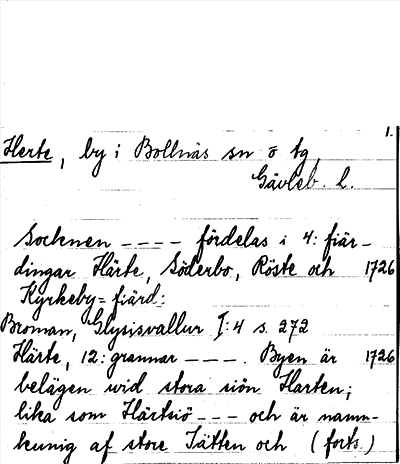 1.
Herte, by i Bollnäs sn ö tg
Gävleb. L.
Socknen ---- fördelas i 4: fiär-
dingar Härte, Söderbo, Röste och 1726
Kyrkeby=fiärd:
Broman, Glysisvallur I:4 s. 272
Härte, 12: grannar ---. Byen är 1726
belägen wid stora siön Harten;
lika som Härtsiö --- och är namn-
kunig af store Jätten och (forts.)